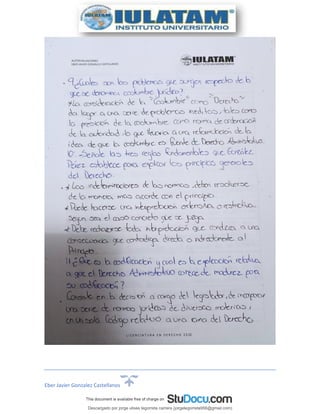 IULATAM
INSTITUTO UNIVERSITARIO
IULATAM
9. ¿Cuáles son los problemas que surgen respecto de lo
que se denomina costumbre jurídica?
La consideración de la "Costumbre" como "Derecho"
da lugar a una serie de problemas inéditos, tales como
la posición de la costumbre como norma de ordenación
de la autoridad, lo que llevaría a una reformulación de la
idea de que la costumbre es fuente de Derecho Administrativo
10.- Señale las tres reglas fundamentales que González
Pérez establece para explicar los principios generales
del Derecho.
Las indeterminaciones de las normas, deben resolverse
de la manera más acorde con el principio.
Puede hacerse una interpretación extensiva o restrictiva
según sea el caso concreto que se juzga.
Debe rechazarse toda interpretación que conduzca a una
consecuencia que contradiga directa o indirectamente al
Principio.
11.- ¿Qué es la codificación y cuál es la explicación relativa
a que el Derecho Administrativo carece de madurez para
su codificación?
Consiste en la decisión a cargo del legislador, de incorporar
una serie de normas jurídicas de diversas materias,
en un solo Código relativo a una rama del Derecho,
LICENCIATURA EN DERECHO
Eber Javier Gonzalez Castellanos
This document is available free of charge on
StuDocu.com
Descargado por jorge ulises legorreta carrera (jorgelegorreta956@gmail.com)